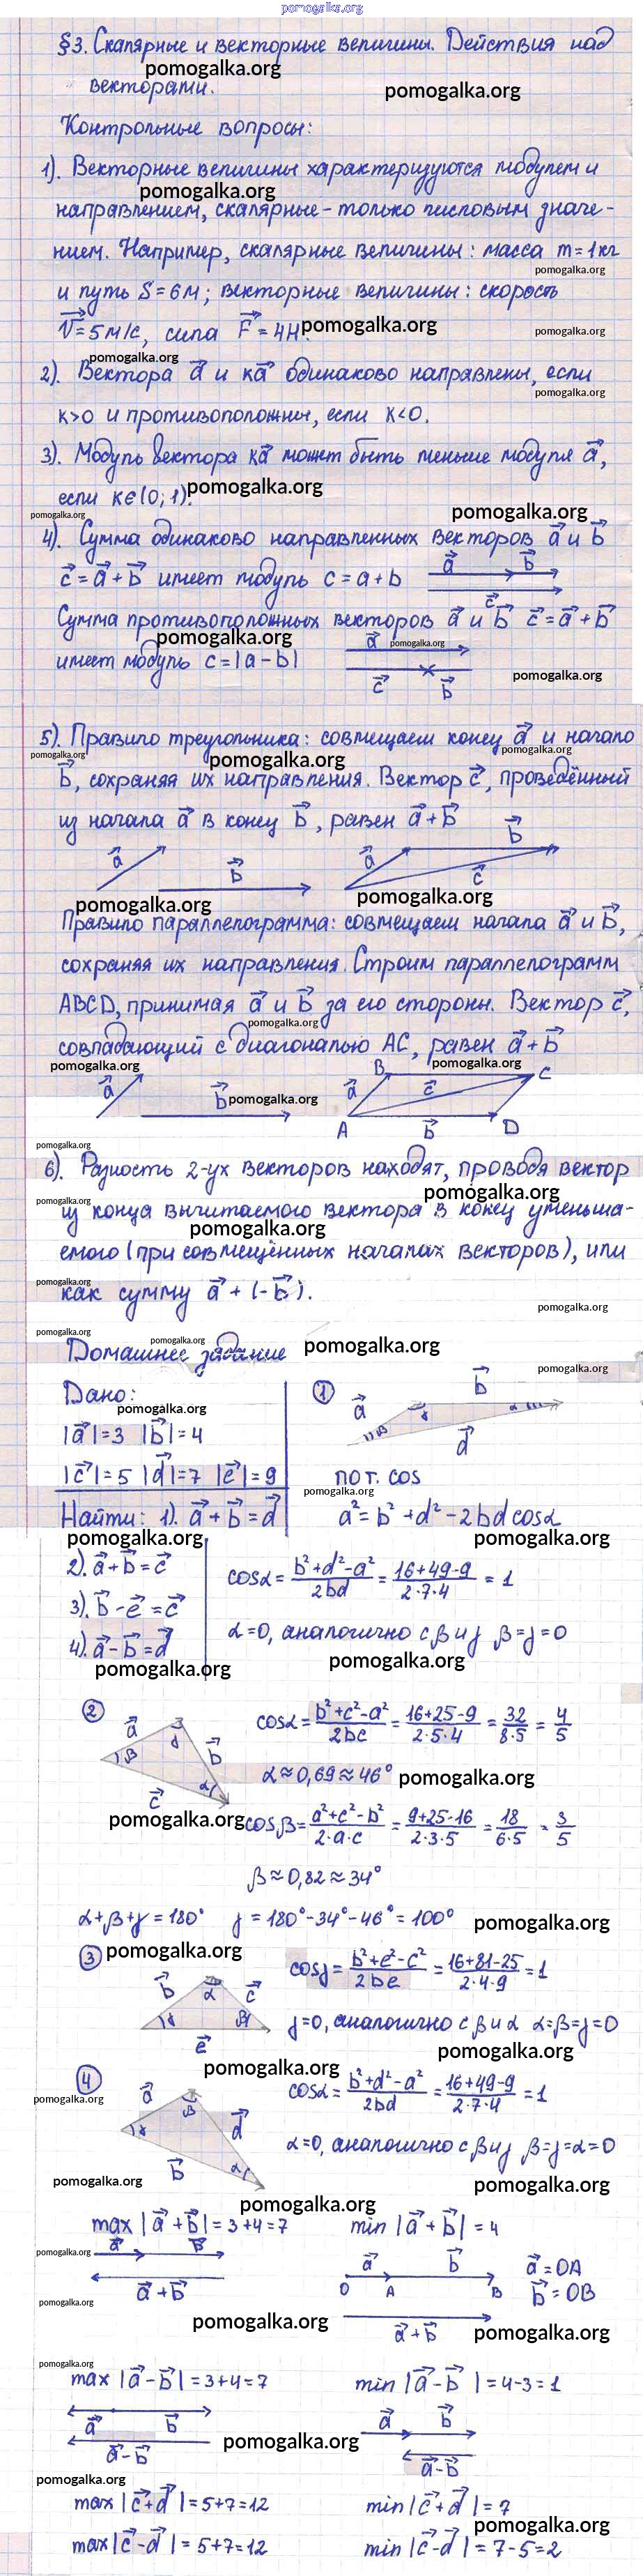 pomogalka.org
§3. Скалярные и векторные величины. Действия над
pomogalka.org
векторами.
pomogalka.org
Контрольные вопросы:
1). Векторные величины характеризуются модулем и
pomogalka.org
направлением, скалярные - только числовым значе-
нием. Например, скалярные величины: масса m = 1кг
pomogalka.org
и путь S = 6м; векторные величины: скорость
V⃗ = 5м/с, сила F⃗ = 4Н.
pomogalka.org
pomogalka.org
pomogalka.org
2). Вектора a⃗ и ka⃗ одинаково направлены, если
pomogalka.org
k>0 и противоположны, если k<0.
3). Модуль вектора ka⃗ может быть меньше модуля a⃗,
если k∈(0;1).
pomogalka.org
pomogalka.org
pomogalka.org
4). Сумма одинаково направленных векторов a⃗ и b⃗
c⃗ = a⃗ + b⃗ имеет модуль c = a + b
a⃗ b⃗
c⃗
Сумма противоположных векторов a⃗ и b⃗ c⃗ = a⃗ + b⃗
pomogalka.org
имеет модуль c = |a - b|
a⃗
pomogalka.org
c⃗ b⃗
pomogalka.org
5). Правило треугольника: совмещаем конец a⃗ и начало
pomogalka.org
pomogalka.org
pomogalka.org
b⃗, сохраняя их направления. Вектор c⃗, проведённый
из начала a⃗ в конец b⃗, равен a⃗ + b⃗
a⃗ b⃗ a⃗ b⃗ c⃗
pomogalka.org
pomogalka.org
Правило параллелограмма: совмещаем начала a⃗ и b⃗,
сохраняя их направления. Строим параллелограмм
ABCD, принимая a⃗ и b⃗ за его стороны. Вектор c⃗,
pomogalka.org
совпадающий с диагональю AC, равен a⃗ + b⃗
pomogalka.org
pomogalka.org
a⃗ b⃗ a⃗ B c⃗ C
pomogalka.org
A b⃗ D
pomogalka.org
6). Разность 2-ух векторов находят, проводя вектор
pomogalka.org
pomogalka.org
из конца вычитаемого вектора в конец уменьша-
pomogalka.org
емого (при совмещённых началах векторов), или
pomogalka.org
как сумму a⃗ + (-b⃗).
pomogalka.org
pomogalka.org
pomogalka.org
pomogalka.org
Домашнее задание
pomogalka.org
Дано:
pomogalka.org
|a⃗| = 3 |b⃗| = 4
|c⃗| = 5 |d⃗| = 7 |e⃗| = 9
Найти: 1). a⃗ + b⃗ = d⃗
pomogalka.org
2). a⃗ + b⃗ = c⃗
3). b⃗ - e⃗ = c⃗
4). a⃗ - b⃗ = d⃗
pomogalka.org
1
a⃗ b⃗
β γ α
d⃗
по т. cos
pomogalka.org
a² = b² + d² - 2bd cosα
pomogalka.org
cosα = (b²+d²-a²)/(2bd) = (16+49-9)/(2·7·4) = 1
α = 0, аналогично с β и γ β = γ = 0
pomogalka.org
2
a⃗ b⃗ c⃗
β γ α
cosα = (b²+c²-a²)/(2bc) = (16+25-9)/(2·5·4) = 32/(8·5) = 4/5
α ≈ 0,69 ≈ 46°
pomogalka.org
pomogalka.org
cosβ = (a²+c²-b²)/(2·a·c) = (9+25-16)/(2·3·5) = 18/(6·5) = 3/5
β ≈ 0,82 ≈ 34°
α + β + γ = 180° γ = 180° - 34° - 46° = 100°
pomogalka.org
3
pomogalka.org
b⃗ α c⃗
γ β
e⃗
cosγ = (b²+e²-c²)/(2be) = (16+81-25)/(2·4·9) = 1
γ = 0, аналогично с β и α α = β = γ = 0
pomogalka.org
pomogalka.org
4
pomogalka.org
a⃗ β d⃗
γ α
b⃗
cosα = (b²+d²-a²)/(2bd) = (16+49-9)/(2·7·4) = 1
α = 0, аналогично с β и γ β = γ = α = 0
pomogalka.org
pomogalka.org
pomogalka.org
max |a⃗ + b⃗| = 3 + 4 = 7
min |a⃗ + b⃗| = 4
pomogalka.org
a⃗ b⃗
a⃗ + b⃗
pomogalka.org
a⃗ b⃗
O A B
a⃗ = OA
b⃗ = OB
pomogalka.org
a⃗ + b⃗
pomogalka.org
pomogalka.org
max |a⃗ - b⃗| = 3 + 4 = 7
min |a⃗ - b⃗| = 4 - 3 = 1
a⃗ b⃗
a⃗ - b⃗
a⃗ b⃗
a⃗ - b⃗
pomogalka.org
pomogalka.org
max |c⃗ + d⃗| = 5 + 7 = 12
min |c⃗ + d⃗| = 7
pomogalka.org
max |c⃗ - d⃗| = 5 + 7 = 12
min |c⃗ - d⃗| = 7 - 5 = 2